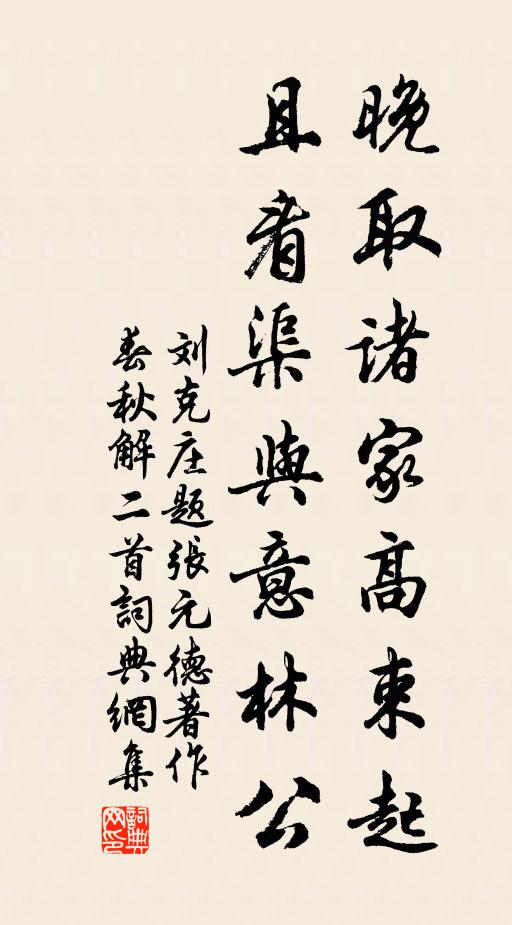 晚取诸家高束起
且看渠與意林公
刘克庄题張元德著作
春秋解二首詞典網集
詞典网印